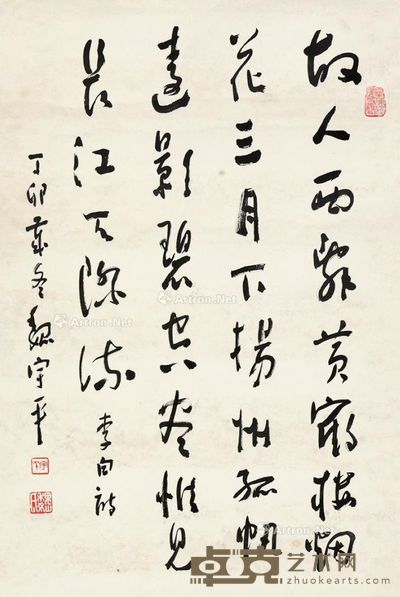 故人西辭黄鶴樓烟
花三月下揚州孤帆
遠影碧空盡惟見
長江天際流 李白詩
丁卯歲冬魏宇平
Artron.Net
Artron.Net
Artron.Net
Artron.Net
卓克艺术网
zhuokearts.com